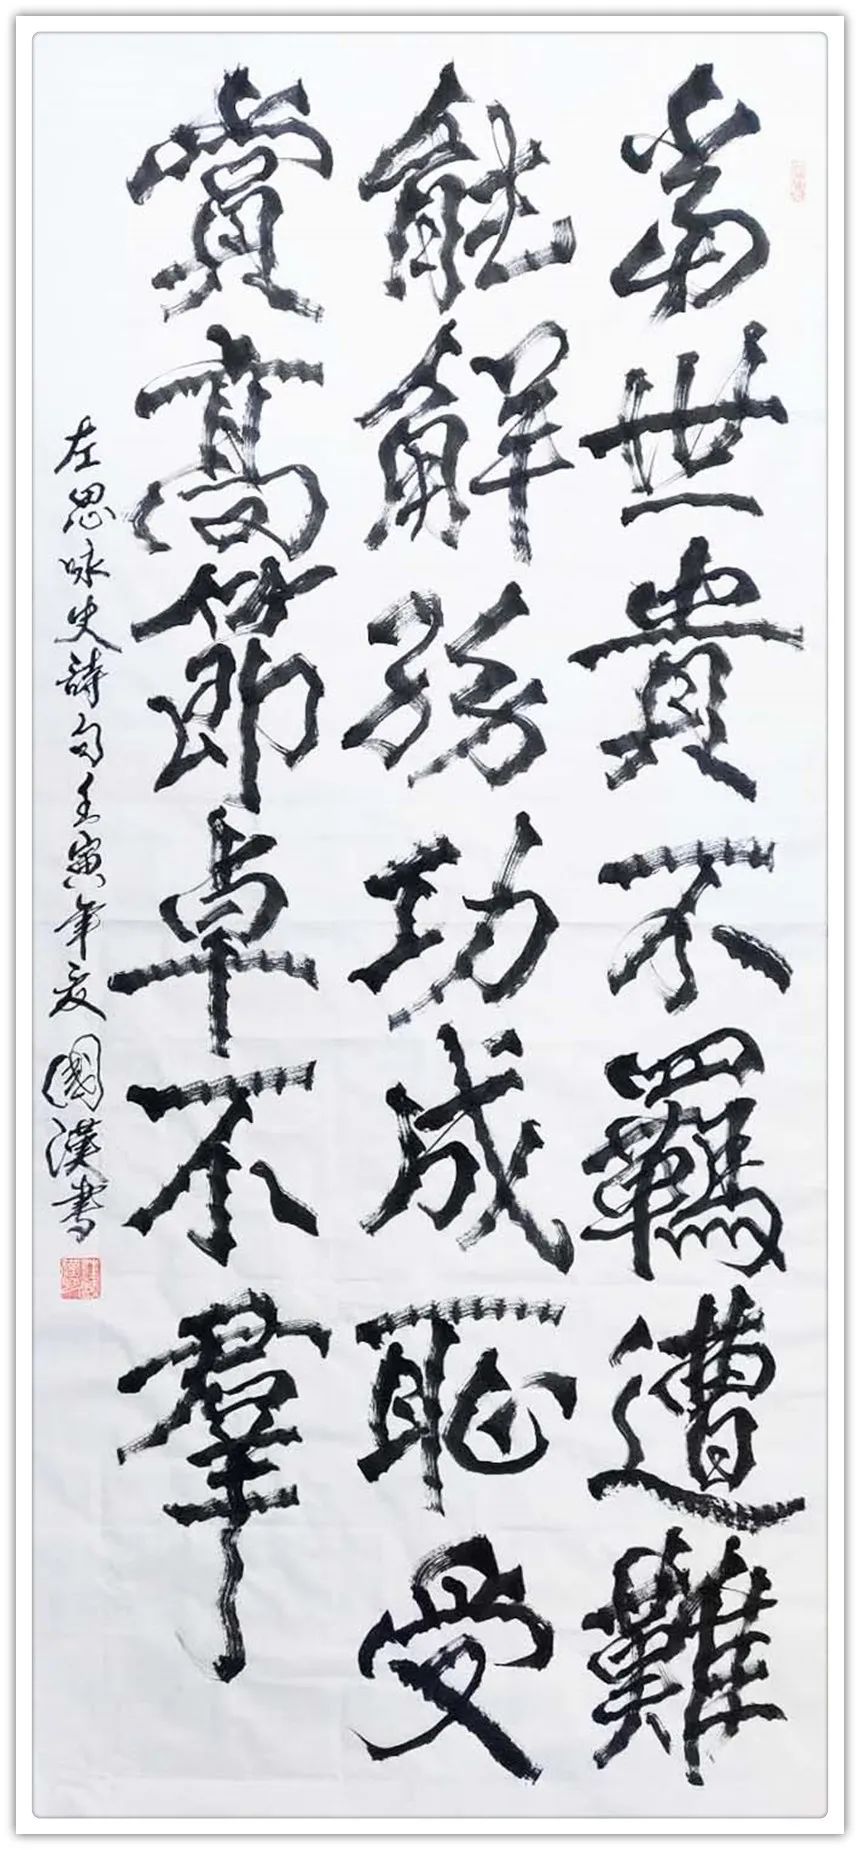 當世貴不羈遭難
能觧紛功成恥受
賞高節卓不羣
左思咏史詩句壬寅年夏國漢書